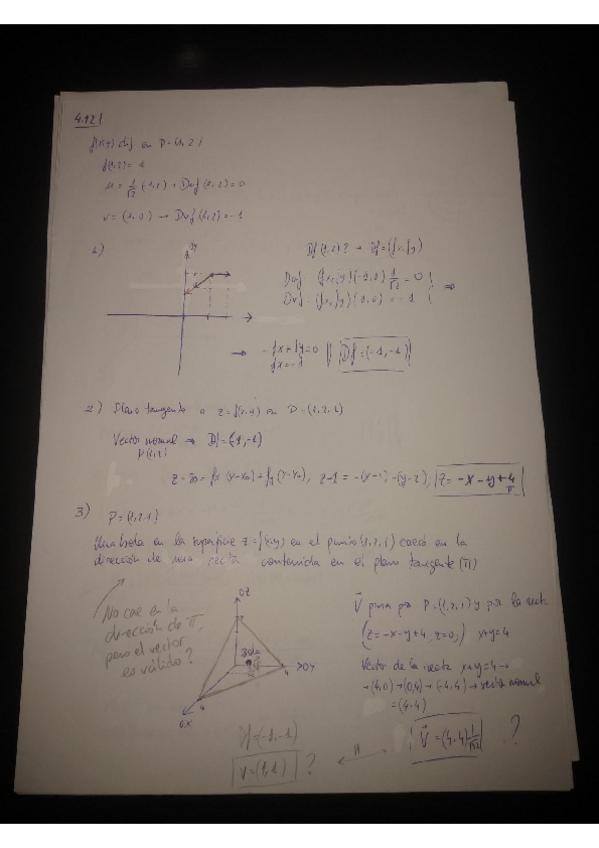 4.12
f(x,y) dif en P=(1,2)
f(1,2)=1
u = 1/√2 (-1,1) → Duf (1,2)=0
v = (1,0) → Dvf (1,2)=-1
1)
Df(1,2)? → Df=(fx,fy)
Duf = (fx,fy)(-1,1) 1/√2 = 0
Dvf = (fx,fy)(1,0) = -1
⇒ -fx+fy=0
fx=-1
Df=(-1,-1)
2) Plano tangente a z=f(x,y) en P=(1,2,1)
Vector normal ⇒ Df=(-1,-1)
P(1,2)
z-z0 = fx (x-x0)+fy (y-y0), z-1 = -(x-1)-(y-2); z= -x-y+4
π
3) P=(1,2,1)
Una bola en la superficie z=f(x,y) en el punto (1,2,1) caerá en la
dirección de una recta contenida en el plano tangente (π)
No cae en la
dirección de π,
pero el vector
es válido?
OZ
Bola
OY
4
4
OX
V pasa por P=(1,2,1) y por la recta
(z=-x-y+4, z=0;) x+y=4
Vector de la recta x+y=4 →
→ (4,0)→(0,4) → (-4,4) → vector normal
= (4,4)
V = (4,4) 1/√32 ?
Df=(-1,-1)
v=(1,1) ?